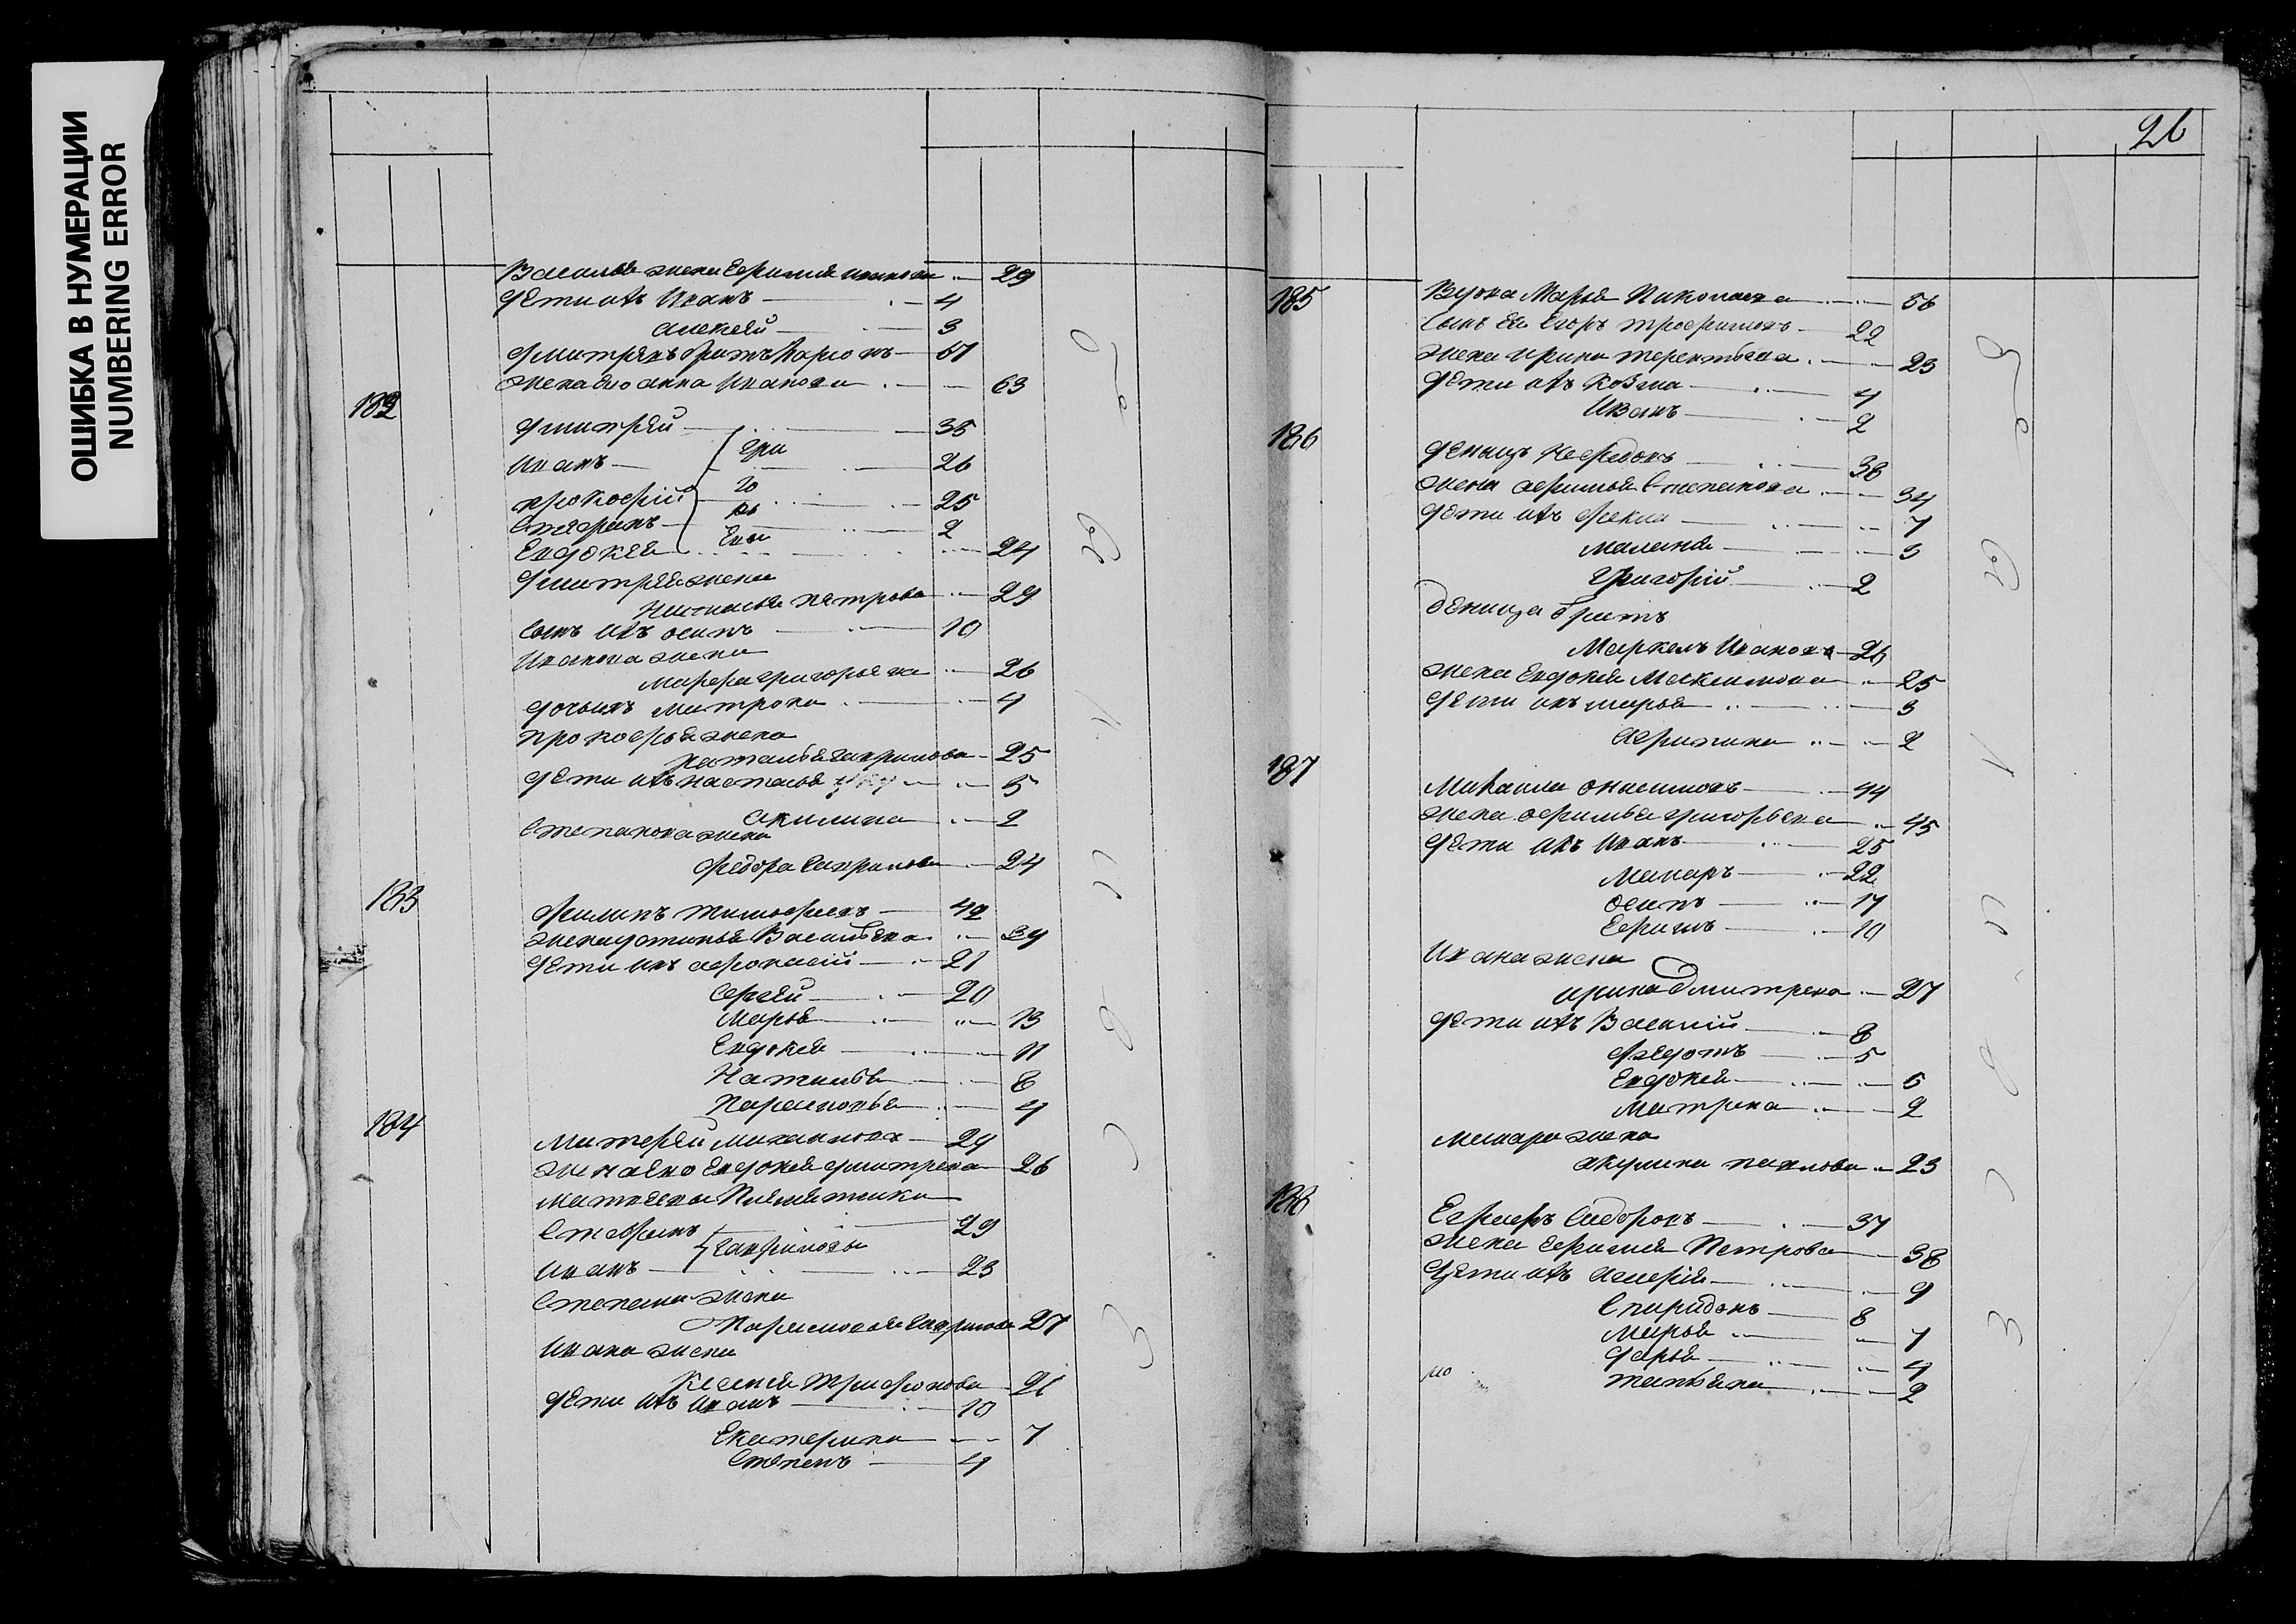 ОШИБКА В НУМЕРАЦИИ
NUMBERING ERROR
Василья жена Ефимия Иванова 29
дети ихъ Иванъ 4
Алексей 3
жена его Анна Иванова 63
182
Дмитрей 35
Иванъ 26
Прокофий 25
Стефанъ 2
Евдокея 24
Дмитрея жена
Настасья Петрова 29
сынъ ихъ Осипъ 10
Иванова жена
Марфа Григорьева 26
дочь ихъ Матрона 4
Прокофья жена
Наталья Гаврилова 25
дети ихъ Настасья 5
Акилина 2
Степанова жена
Федора Гаврилова 24
183
Филипъ Тимофеевъ 42
жена Устинья Васильева 39
дети ихъ Афонасий 21
Сергей 20
Марья 13
Евдокея 11
Наталья 8
Парасковья 4
184
Матфей Михаиловъ 29
жена ево Евдокея Дмитрева 26
Матвеевы Племянники
Стефанъ 29
Гавриловы
Иванъ 23
Степана жена
Парасковья Гаврилова 27
Ивана жена
Ксения Трифонова 21
дети ихъ Иванъ 10
Екатерина 7
Степанъ 4
26
185
Вдова Марья Николаева 56
сынъ ея Егоръ Трофимовъ 22
жена Ирина Терентьева 23
дети ихъ Козма 4
Иванъ 2
186
Денисъ Нефедовъ 38
жена Афимья Степанова 34
дети ихъ Фекла 7
Маланья 3
Григорий 2
Дениса братъ
Маркелъ Иванова 26
жена Евдокея Максимова 25
дети ихъ Марья 3
Агрипина 2
187
Михаила Онисимовъ 44
жена Афимья Григорьева 45
дети ихъ Иванъ 25
Макаръ 22
Осипъ 17
Ефимъ 10
Ивана жена
Ирина Дмитрева 27
дети ихъ Василий 8
Федотъ 5
Евдокея 5
Матрена 2
Макара жена
Акулина Павлова 23
188
Сидоровъ 37
жена Ефимия Петрова 38
дети ихъ 9
Спиридонъ 8
Марья 7
Дарья 4
Татьяна 2